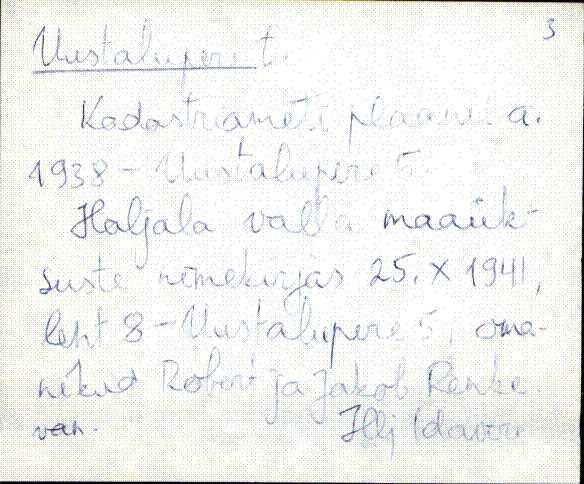 3
Uustalupere t.
Kadastriameti plaanil a.
1938 - Uustalupere 5.
Haljala valla maaük-
suste nimekirjas 25. X 1941,
leht 8 - Uustalupere 5, oma-
nikud Robert ja Jakob Renke
van. Hlj Idavere